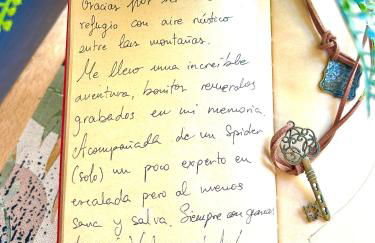 Gracias por ser
refugio con aire rústico
entre las montañas.
Me llevo una increíble
aventura, bonitos recuerdos
grabados en mi memoria.
Acompañada de un Spider
(solo) un poco experto en
escalada pero al menos
sana y salva. Siempre con ganas